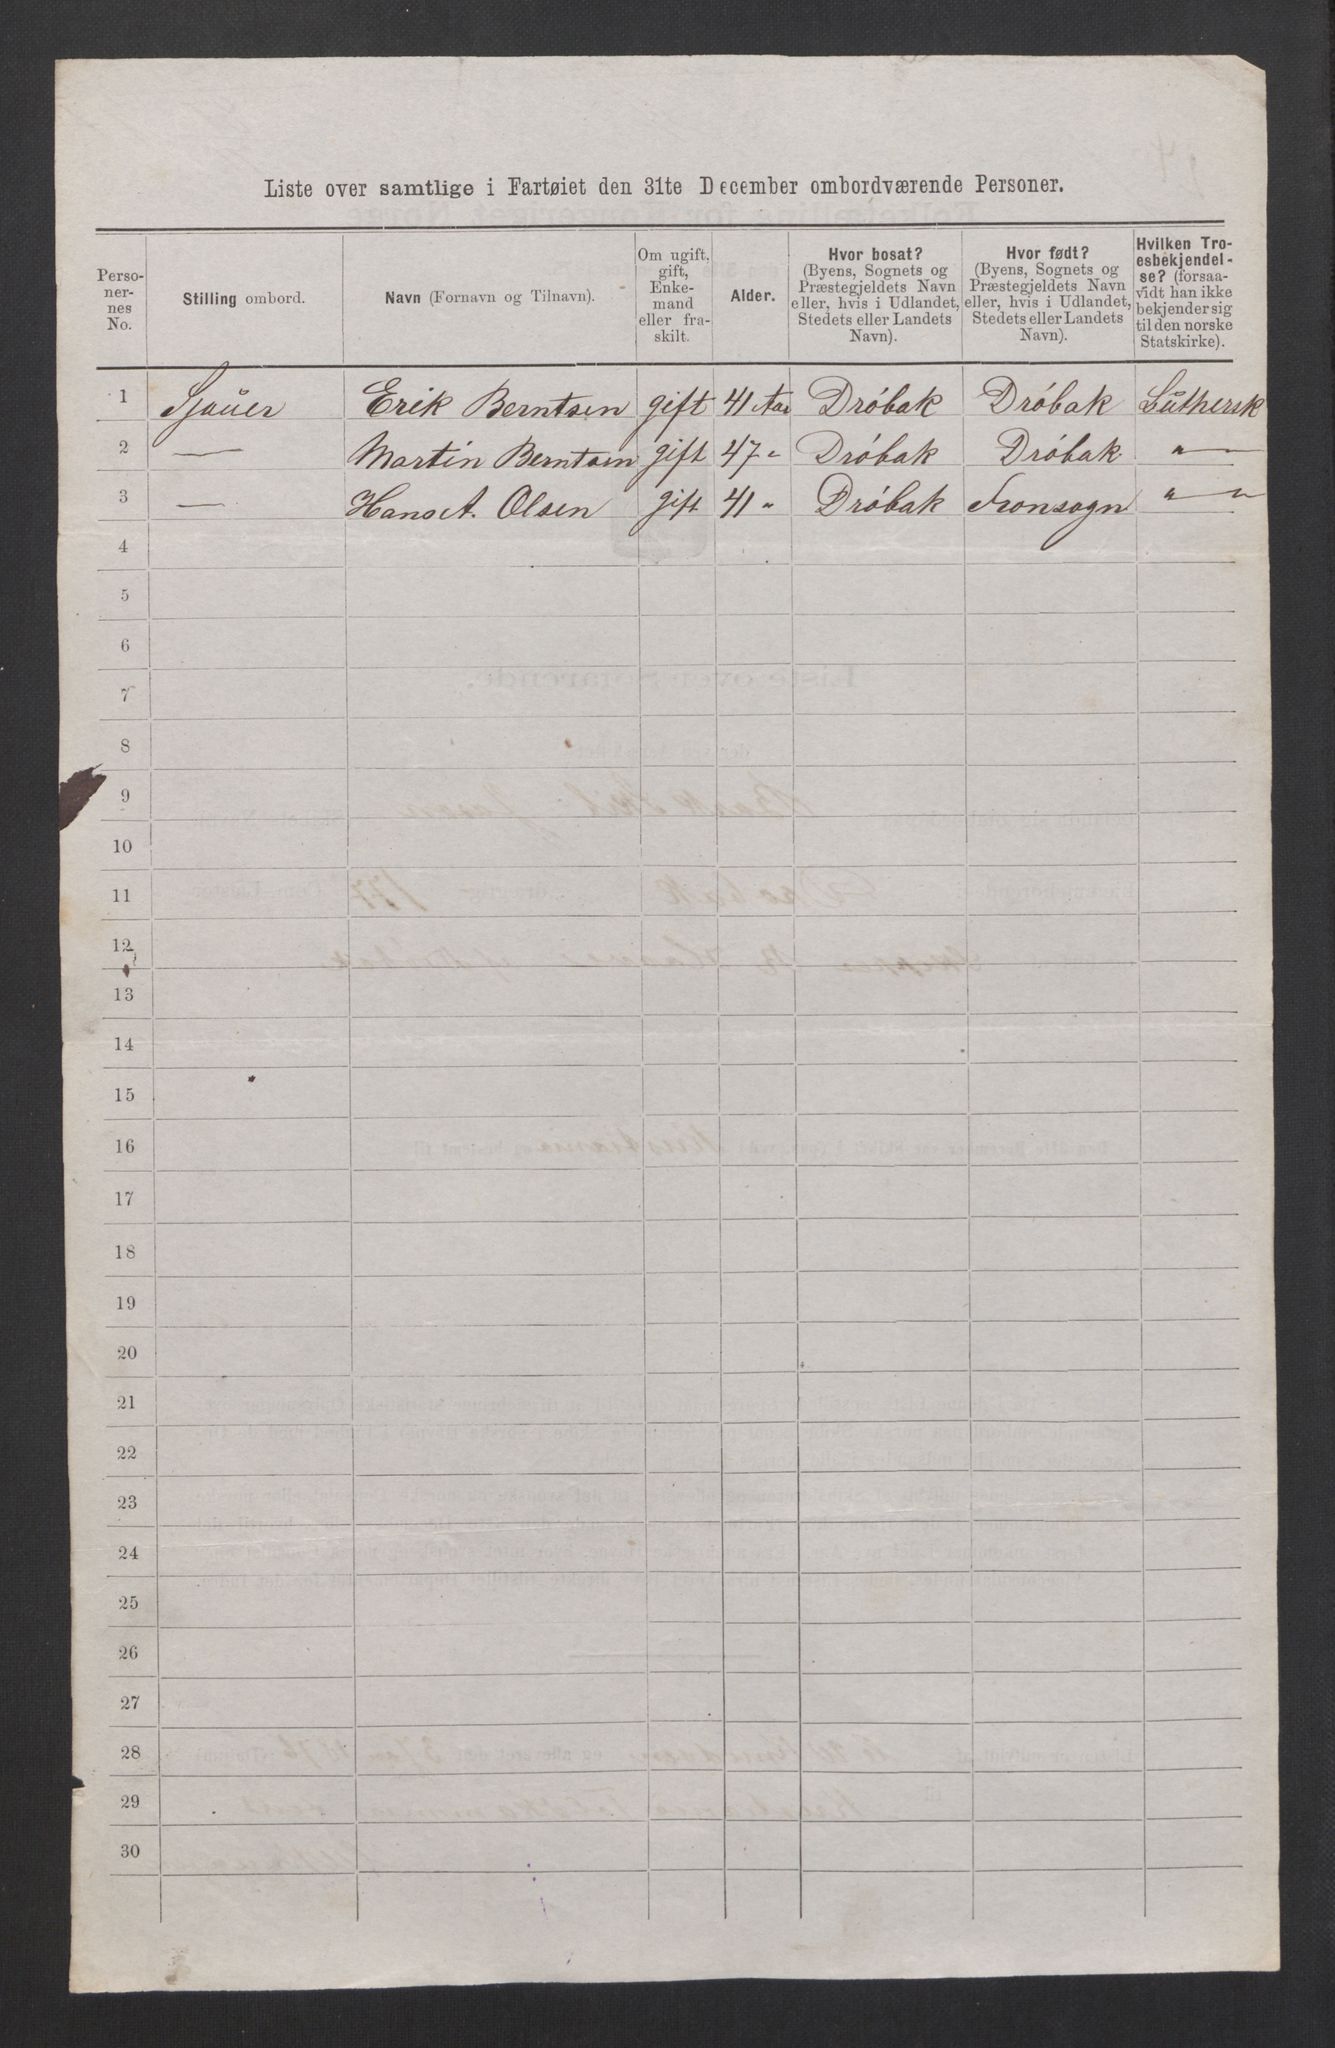 Liste over samtlige i Fartøiet den 31te December ombordværende Personer.
Perso-
ner-
nes
No.
Stilling ombord.
Navn (Fornavn og Tilnavn).
Om ugift,
gift,
Enke-
mand
eller fra-
skilt.
Alder.
Hvor bosat?
(Byens, Sognets og
Præstegjeldets Navn
eller, hvis i Udlandet,
Stedets eller Landets
Navn).
Hvor født?
(Byens, Sognets og
Præstegjeldets Navn
eller, hvis i Udlandet,
Stedets eller Landets
Navn).
Hvilken Tro-
esbekjendel-
se? (forsaa-
vidt han ikke
bekjender sig
til den norske
Statskirke).
1 Sjauer Erik Berntsen gift 41 Aar Drøbak Drøbak Luthersk
2 — Martin Berntsen gift 47 " Drøbak Drøbak " —
3 — Hans A. Olsen gift 41 " Drøbak Fronsogn " "
4
5
6
7
8
9
10
11
12
13
14
15
16
17
18
19
20
21
22
23
24
25
26
27
28
29
30